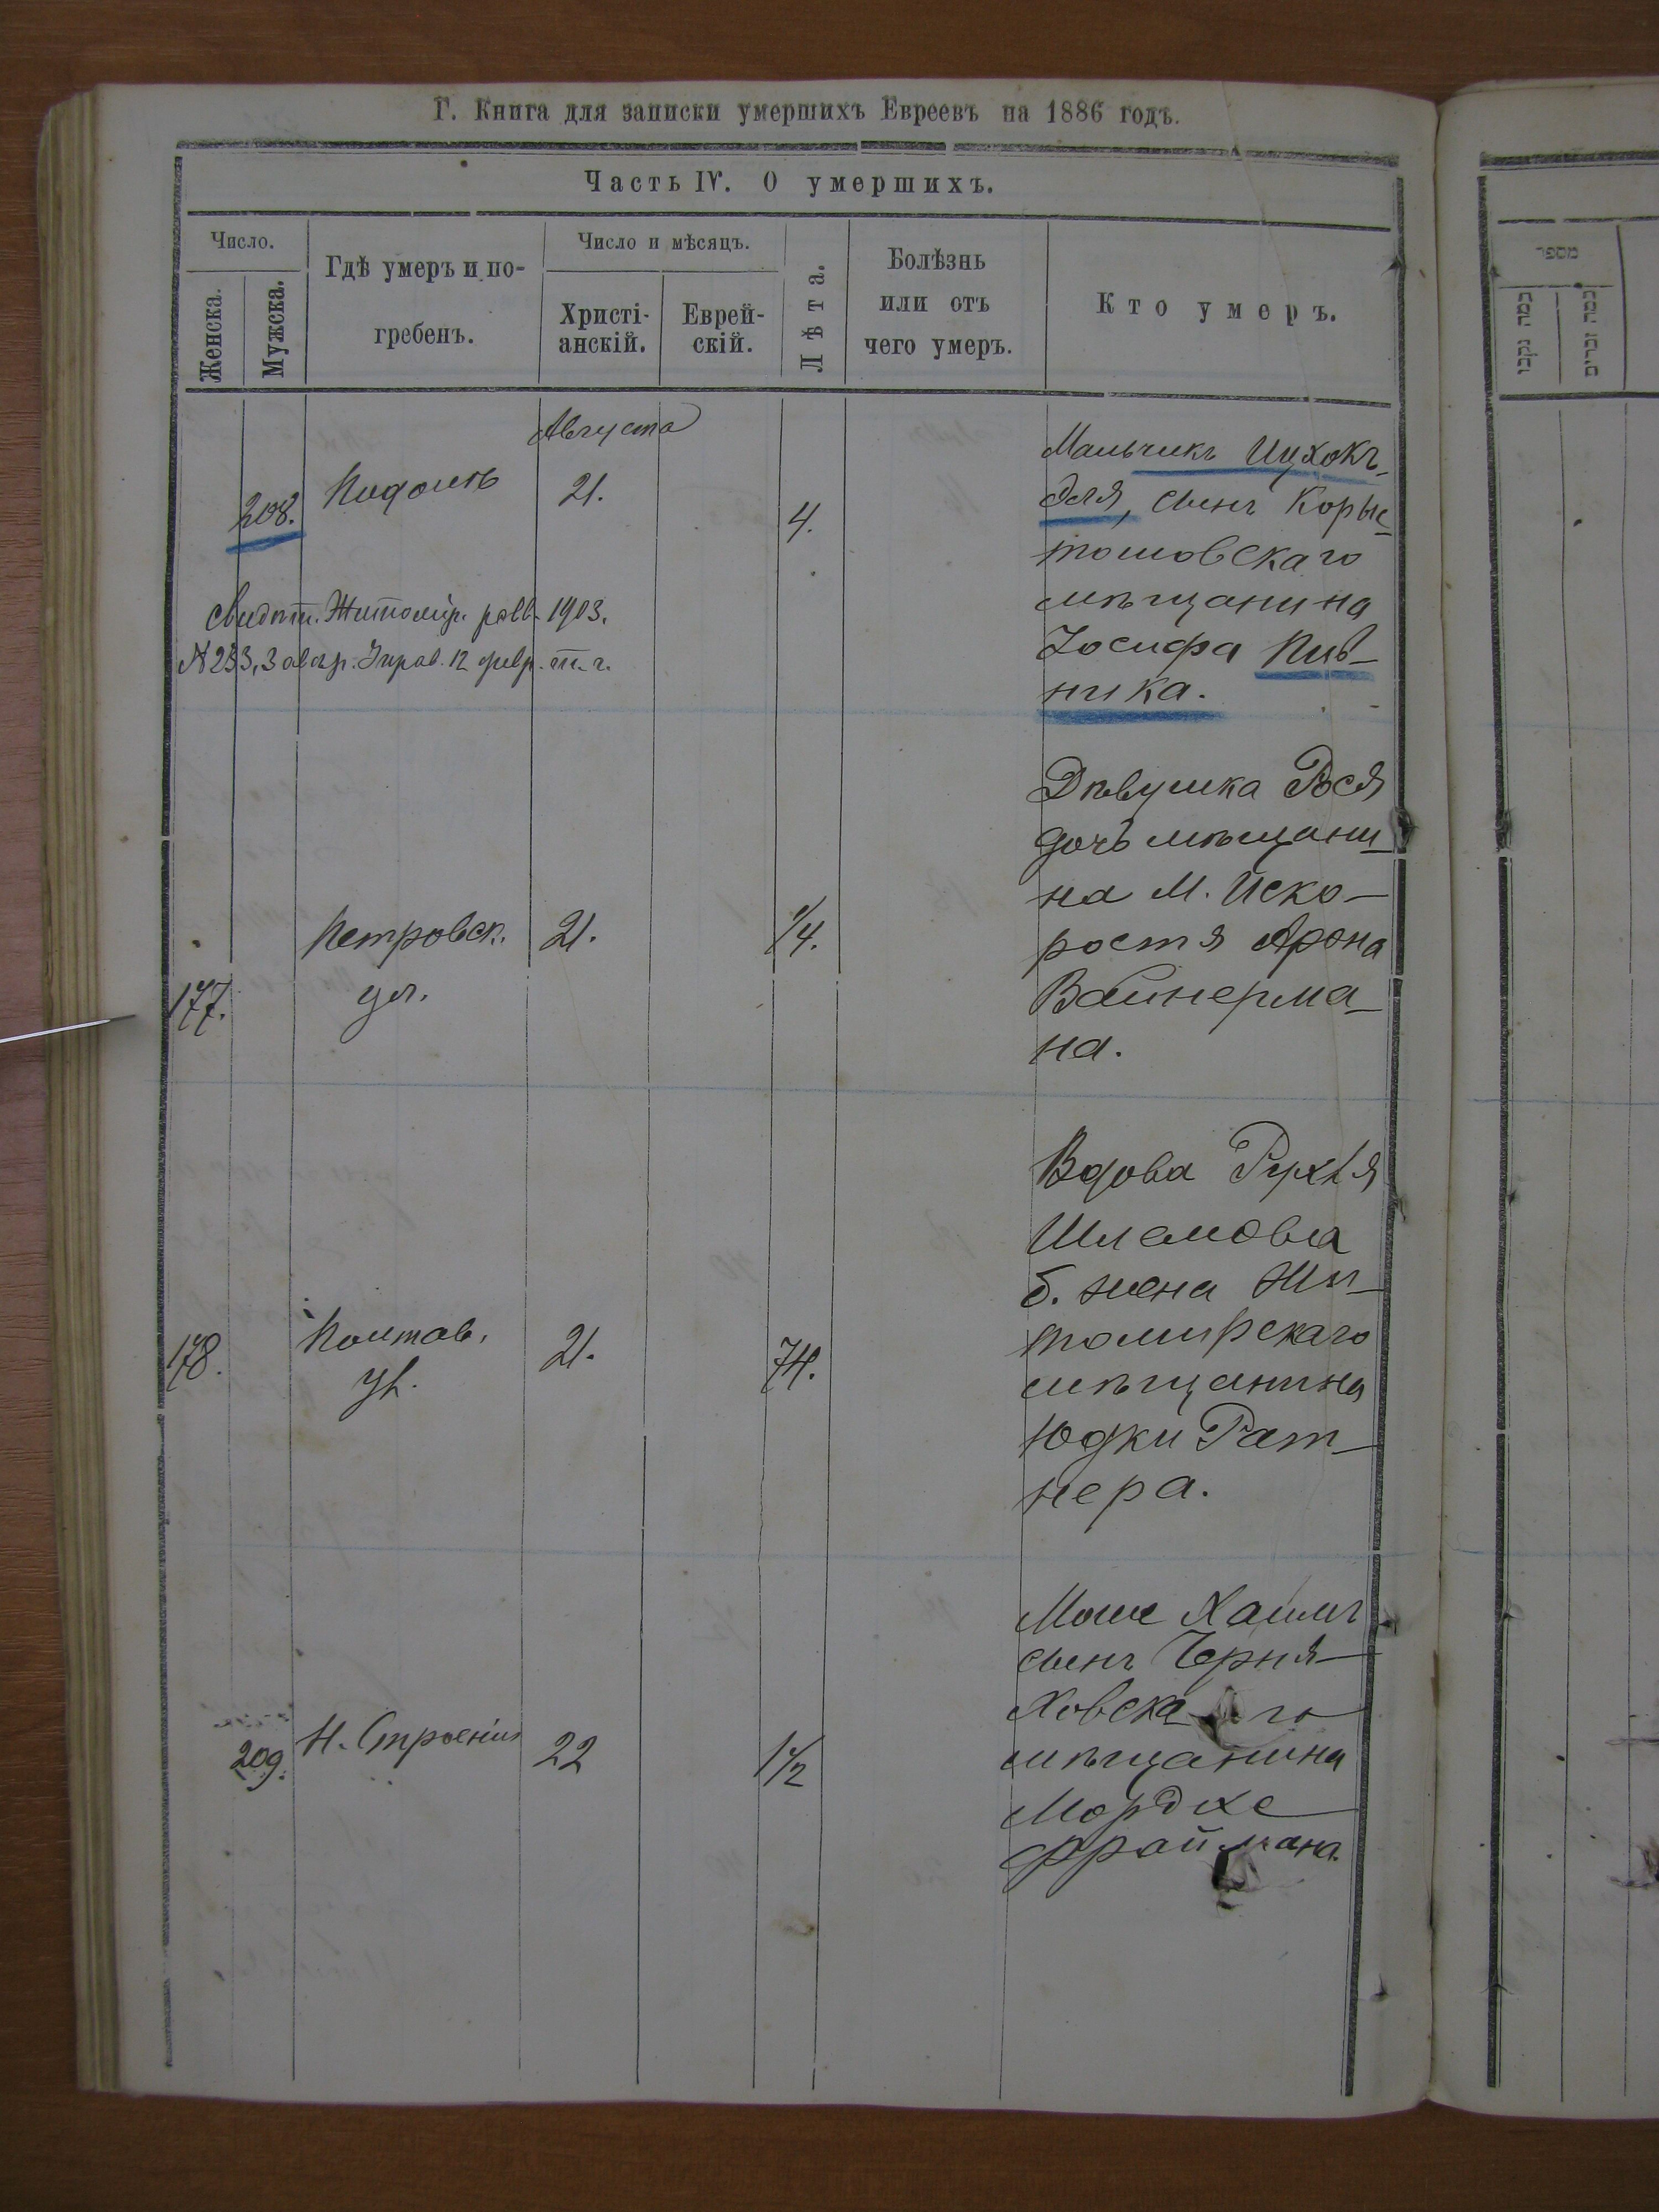 Г. Книга для записки умершихъ Евреевъ на 1886 годъ.
Часть IV. О умершихъ.
Число.
Женска.
Мужска.
Гдѣ умеръ и по-
гребенъ.
Число и мѣсяцъ.
Христі-
анскій.
Еврей-
скій.
Лѣта.
Болѣзнь
или отъ
чего умеръ.
Кто умеръ.
Августа
208.
Подолъ
21.
4.
Мальчикъ Ицхокъ-
Эля, сынъ Корые-
тошовскаго
мѣщанина
Іосифа Пив-
ника.
Свидѣт. Житомір. равв. 1903.
№ 233, 12 февр. т. г.
177.
Петровск.
ул.
21.
1/4.
Дѣвушка Рося
дочь мѣщани-
на М. Иско-
ростя Арона
Вайнерма-
на.
178.
Полтав.
ул.
21.
74.
Вдова Рухля
Шлемова
б. жена Жи-
томирскаго
мѣщанина
Юдки Рат-
нера.
209.
Н. Строенія
22
1 1/2
Моше Хаимъ
сынъ Черня-
ховскаго
мѣщанина
Мордхе
Фраймана.
מספר
כמה נקבו
כמה זכרים